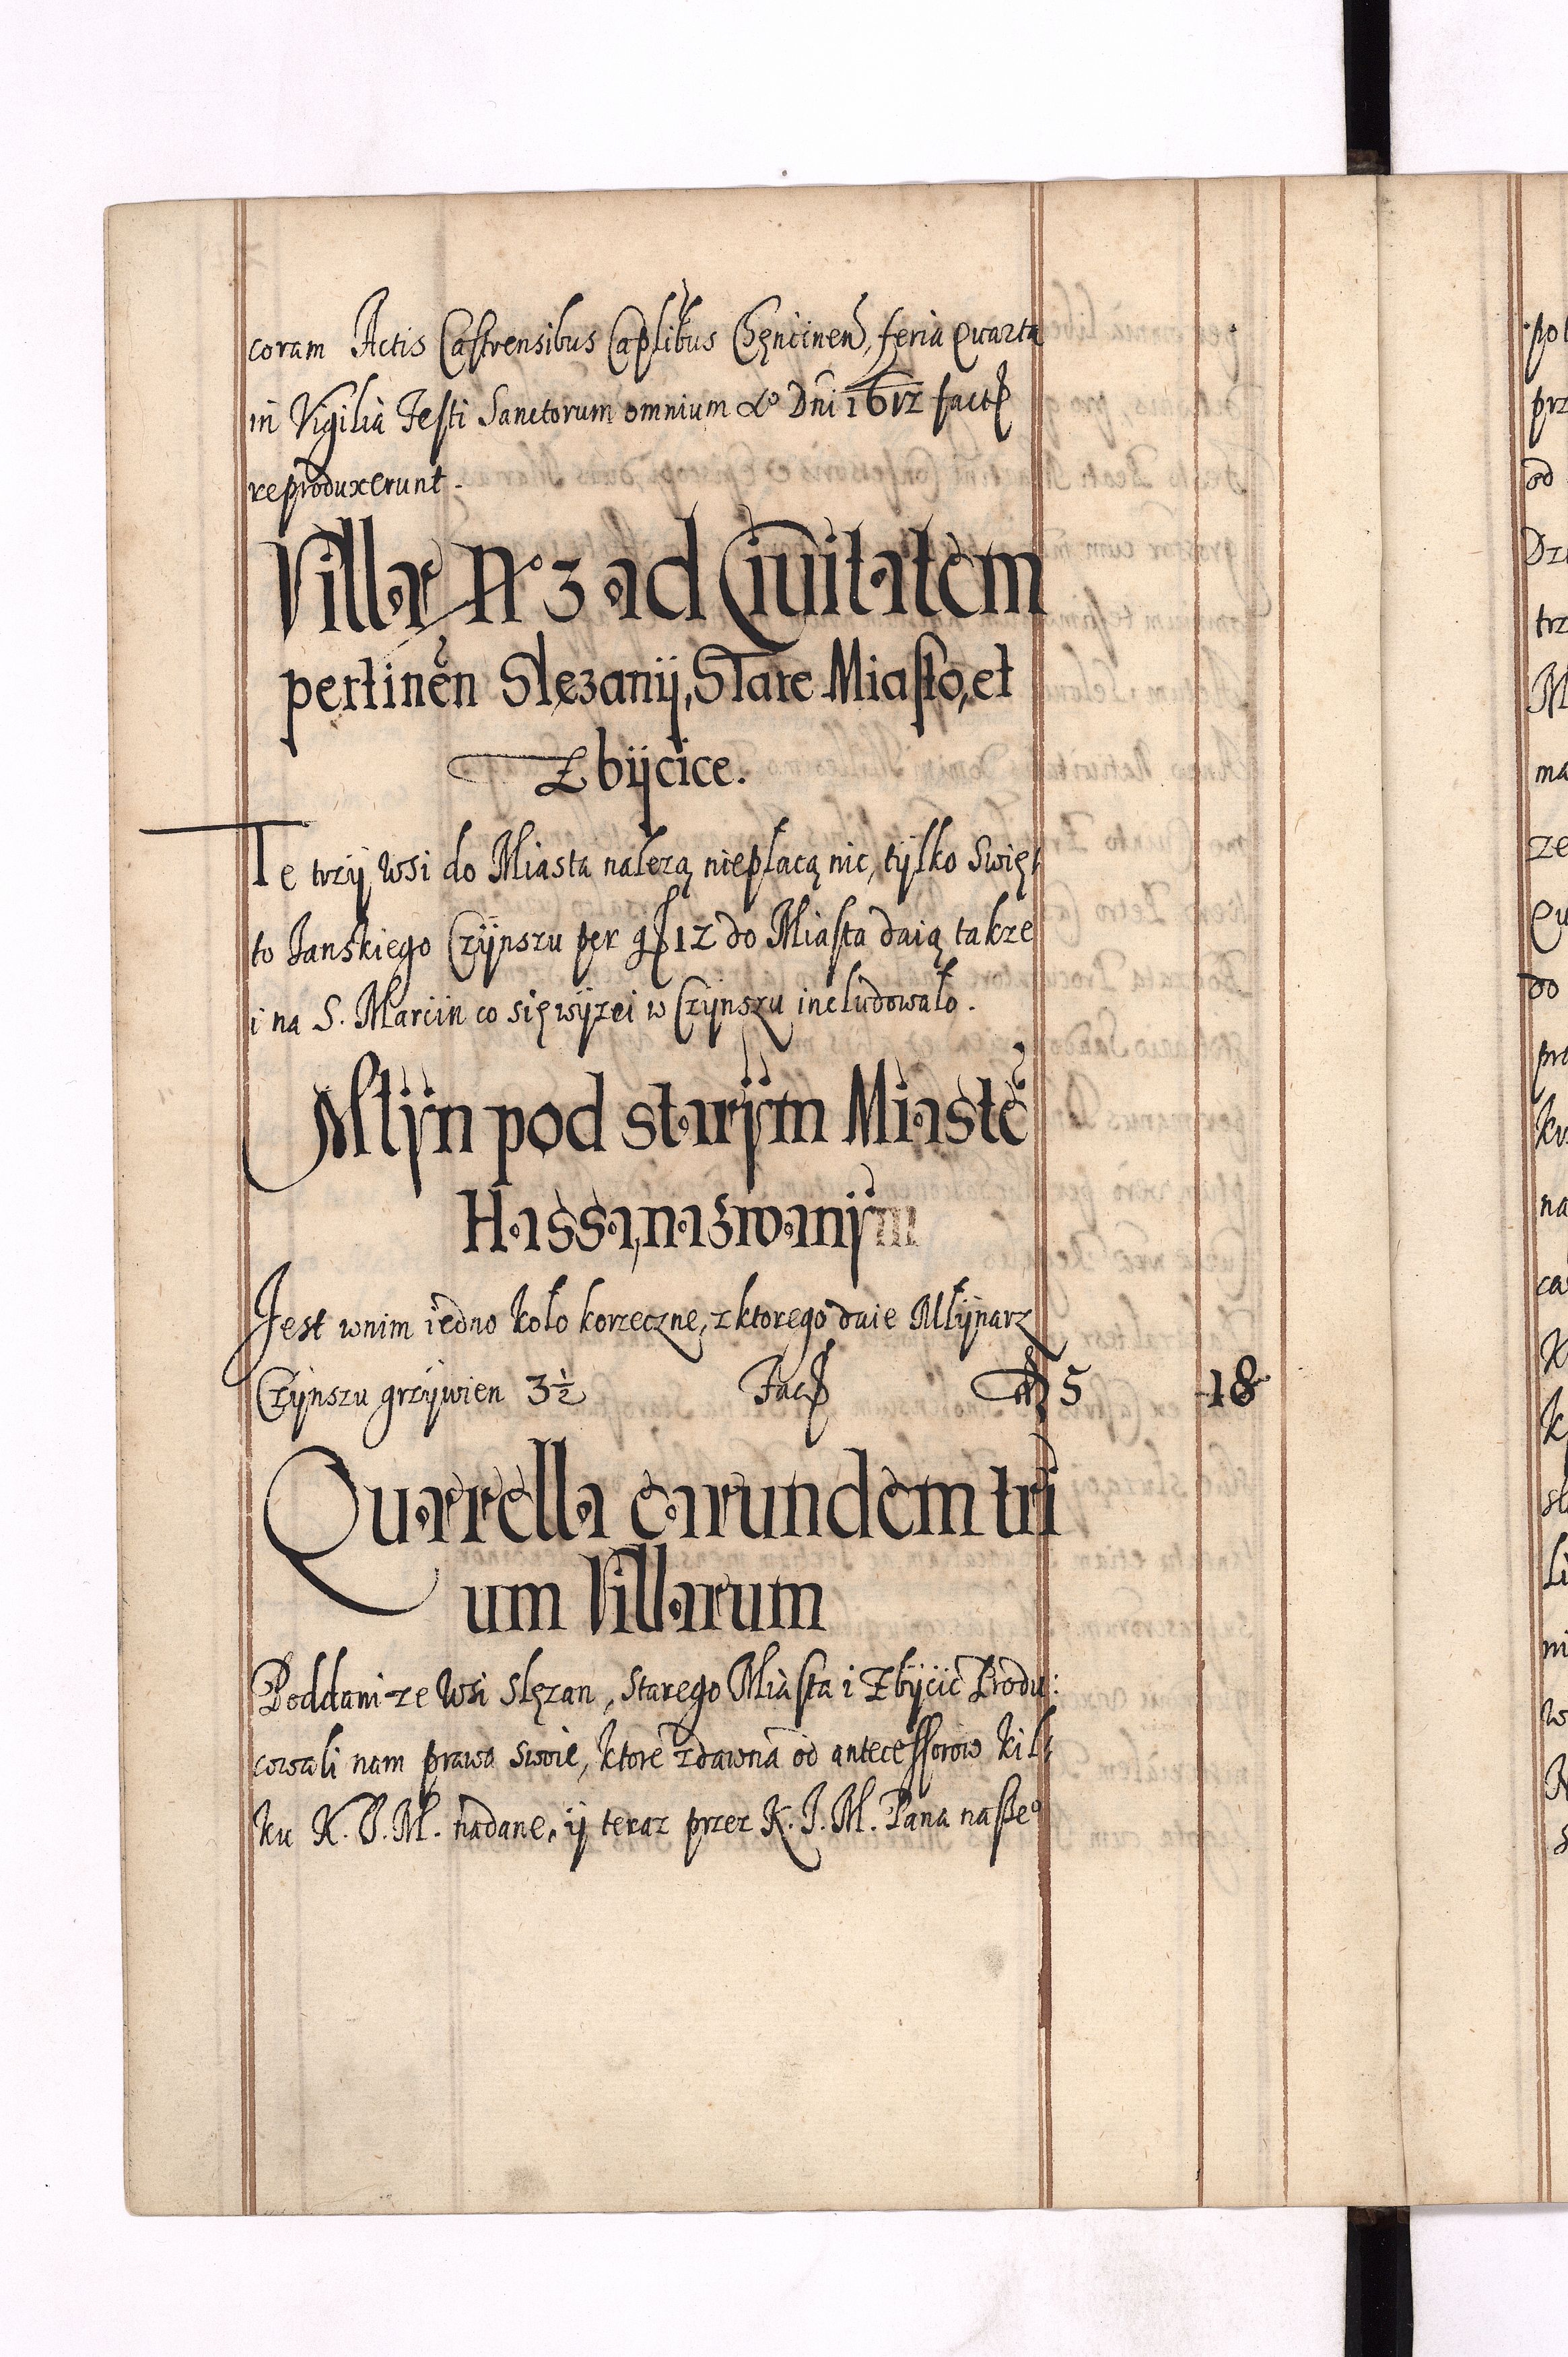 coram Actis Castrensibus Caplibus Chęncinen, feria Quarta
in Vigilia Festi Sanctorum omnium Ao Dni 1612 fact
reproduxerunt.
Villæ No 3 ad Ciuitatem
pertinen Slęzanÿ, Stare Miasto, et
Zbÿcice.
Te trzÿ Wsi do Miasta nalezą nieplacą nic, tÿlko Swię
to Janskiego Czÿnszu per g 12 do Miasta daią takze
i na S. Marcin co się wÿzei w Czÿnszu includowało.
Młÿn pod starÿm Miastē
Hassa, nazwanÿm
Jest wnim iedno koło korzeczne, z ktorego daie Młÿnarz
Czÿnszu grzÿwien 3½ Fac 5 18
Quærella earundem tri
um Villarum
Poddani ze Wsi Slęzan, Starego Miasta i Zbÿcic Produ:
cowali nam prawa swoie, ktore zdawna od antecessorow kil
ku K. J. M. nadane, ÿ teraz przez K. J. M. Pana naszeo